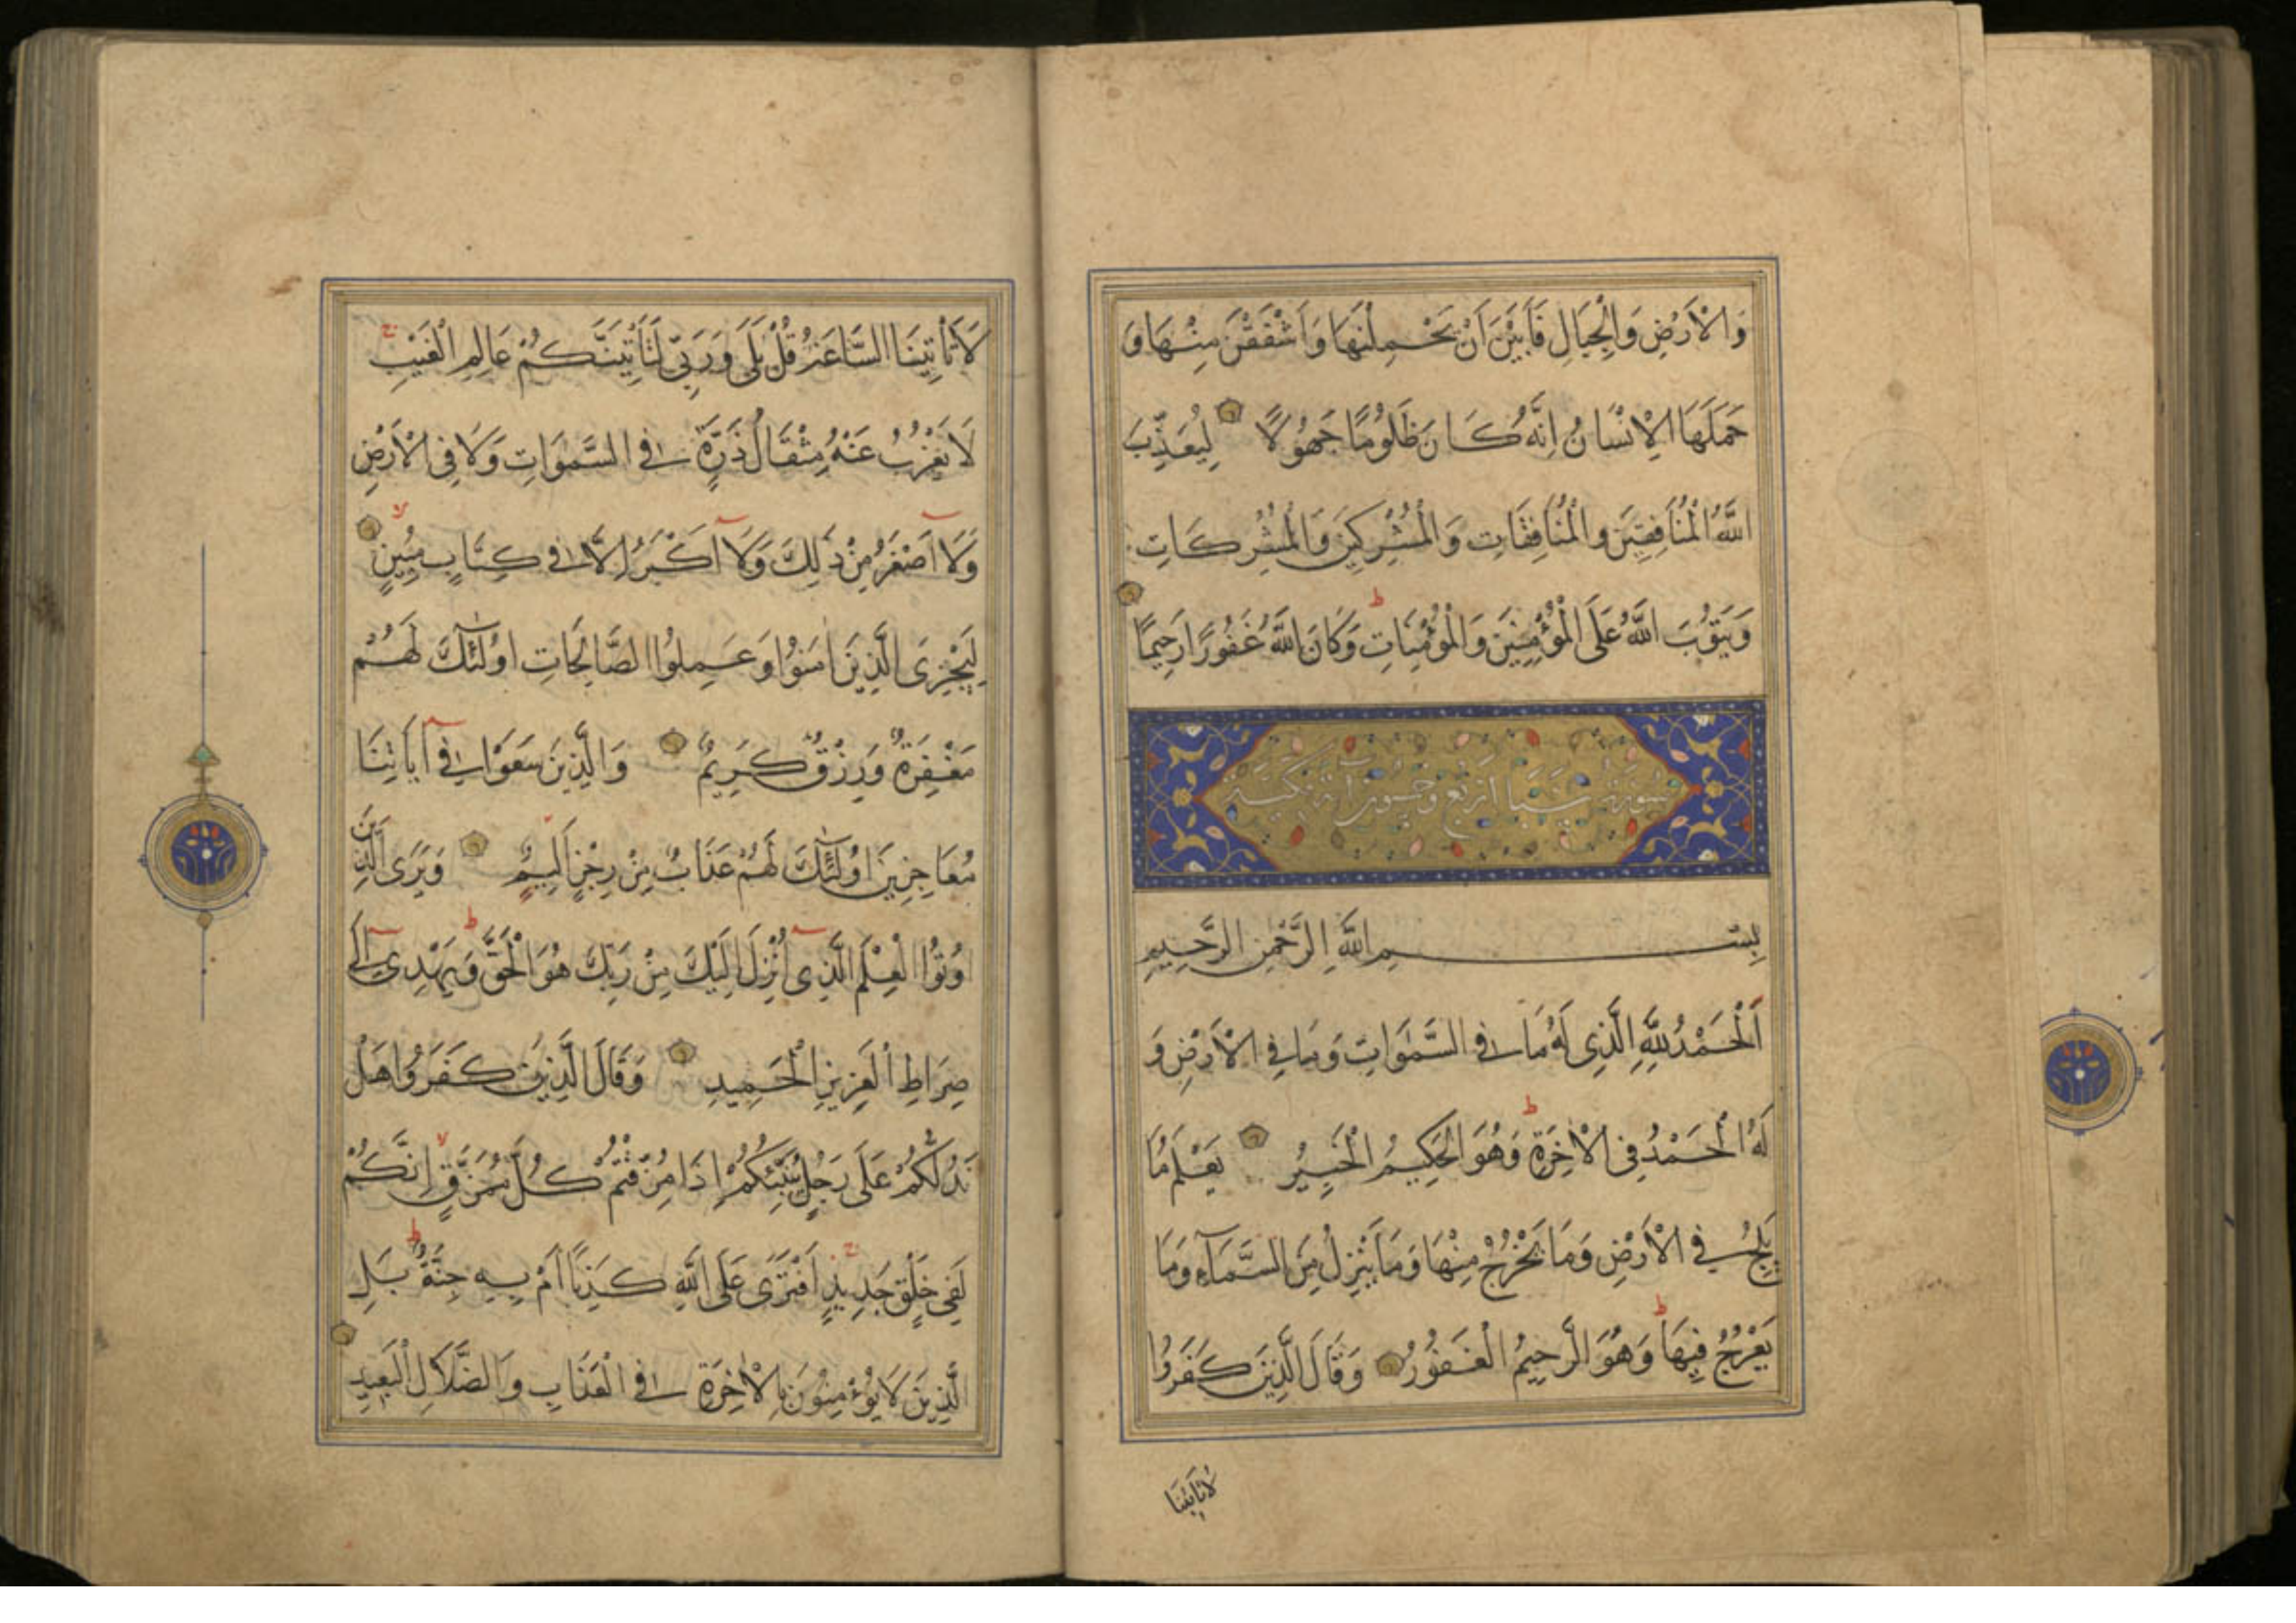 وَالْاَرْضِ وَالْجِبَالِ فَاَبَيْنَ اَنْ يَحْمِلْنَهَا وَاَشْفَقْنَ مِنْهَا وَ
حَمَلَهَا الْاِنْسَانُ اِنَّهُ كَانَ ظَلُومًا جَهُولًا لِيُعَذِّبَ
اللَّهُ الْمُنَافِقِينَ وَالْمُنَافِقَاتِ وَالْمُشْرِكِينَ وَالْمُشْرِكَاتِ
وَيَتُوبَ اللَّهُ عَلَى الْمُؤْمِنِينَ وَالْمُؤْمِنَاتِ ط وَكَانَ اللَّهُ غَفُورًا رَحِيمًا
سورة سبا اربع وخمسون آية مكية
بِسْمِ اللَّهِ الرَّحْمٰنِ الرَّحِيمِ
اَلْحَمْدُ لِلَّهِ الَّذِى لَهُ مَا فِى السَّمٰوَاتِ وَمَا فِى الْاَرْضِ وَ
لَهُ الْحَمْدُ فِى الْاٰخِرَةِ ط وَهُوَ الْحَكِيمُ الْخَبِيرُ يَعْلَمُ مَا
يَلِجُ فِى الْاَرْضِ وَمَا يَخْرُجُ مِنْهَا وَمَا يَنْزِلُ مِنَ السَّمَآءِ وَمَا
يَعْرُجُ فِيهَا ط وَهُوَ الرَّحِيمُ الْغَفُورُ وَقَالَ الَّذِينَ كَفَرُوا
لَا تَأْتِينَا
لَا تَأْتِينَا السَّاعَةُ قُلْ بَلَى وَرَبِّى لَتَأْتِيَنَّكُمْ عَالِمِ الْغَيْبِ ج
لَا يَعْزُبُ عَنْهُ مِثْقَالُ ذَرَّةٍ فِى السَّمٰوَاتِ وَلَا فِى الْاَرْضِ
وَلَآ اَصْغَرُ مِنْ ذٰلِكَ وَلَآ اَكْبَرُ اِلَّا فِى كِتَابٍ مُبِينٍ لا
لِيَجْزِىَ الَّذِينَ اٰمَنُوا وَعَمِلُوا الصَّالِحَاتِ اُولٰٓئِكَ لَهُمْ
مَغْفِرَةٌ وَرِزْقٌ كَرِيمٌ وَالَّذِينَ سَعَوْا فِىٓ اٰيَاتِنَا
مُعَاجِزِينَ اُولٰٓئِكَ لَهُمْ عَذَابٌ مِنْ رِجْزٍ اَلِيمٌ وَيَرَى الَّذِينَ
اُوتُوا الْعِلْمَ الَّذِىٓ اُنْزِلَ اِلَيْكَ مِنْ رَبِّكَ هُوَ الْحَقَّ ط وَيَهْدِىٓ اِلَى
صِرَاطِ الْعَزِيزِ الْحَمِيدِ وَقَالَ الَّذِينَ كَفَرُوا هَلْ
نَدُلُّكُمْ عَلَى رَجُلٍ يُنَبِّئُكُمْ اِذَا مُزِّقْتُمْ كُلَّ مُمَزَّقٍ لا اِنَّكُمْ
لَفِى خَلْقٍ جَدِيدٍ ج اَفْتَرَى عَلَى اللَّهِ كَذِبًا اَمْ بِهِ جِنَّةٌ ط بَلِ
الَّذِينَ لَا يُؤْمِنُونَ بِالْاٰخِرَةِ فِى الْعَذَابِ وَالضَّلَالِ الْبَعِيدِ